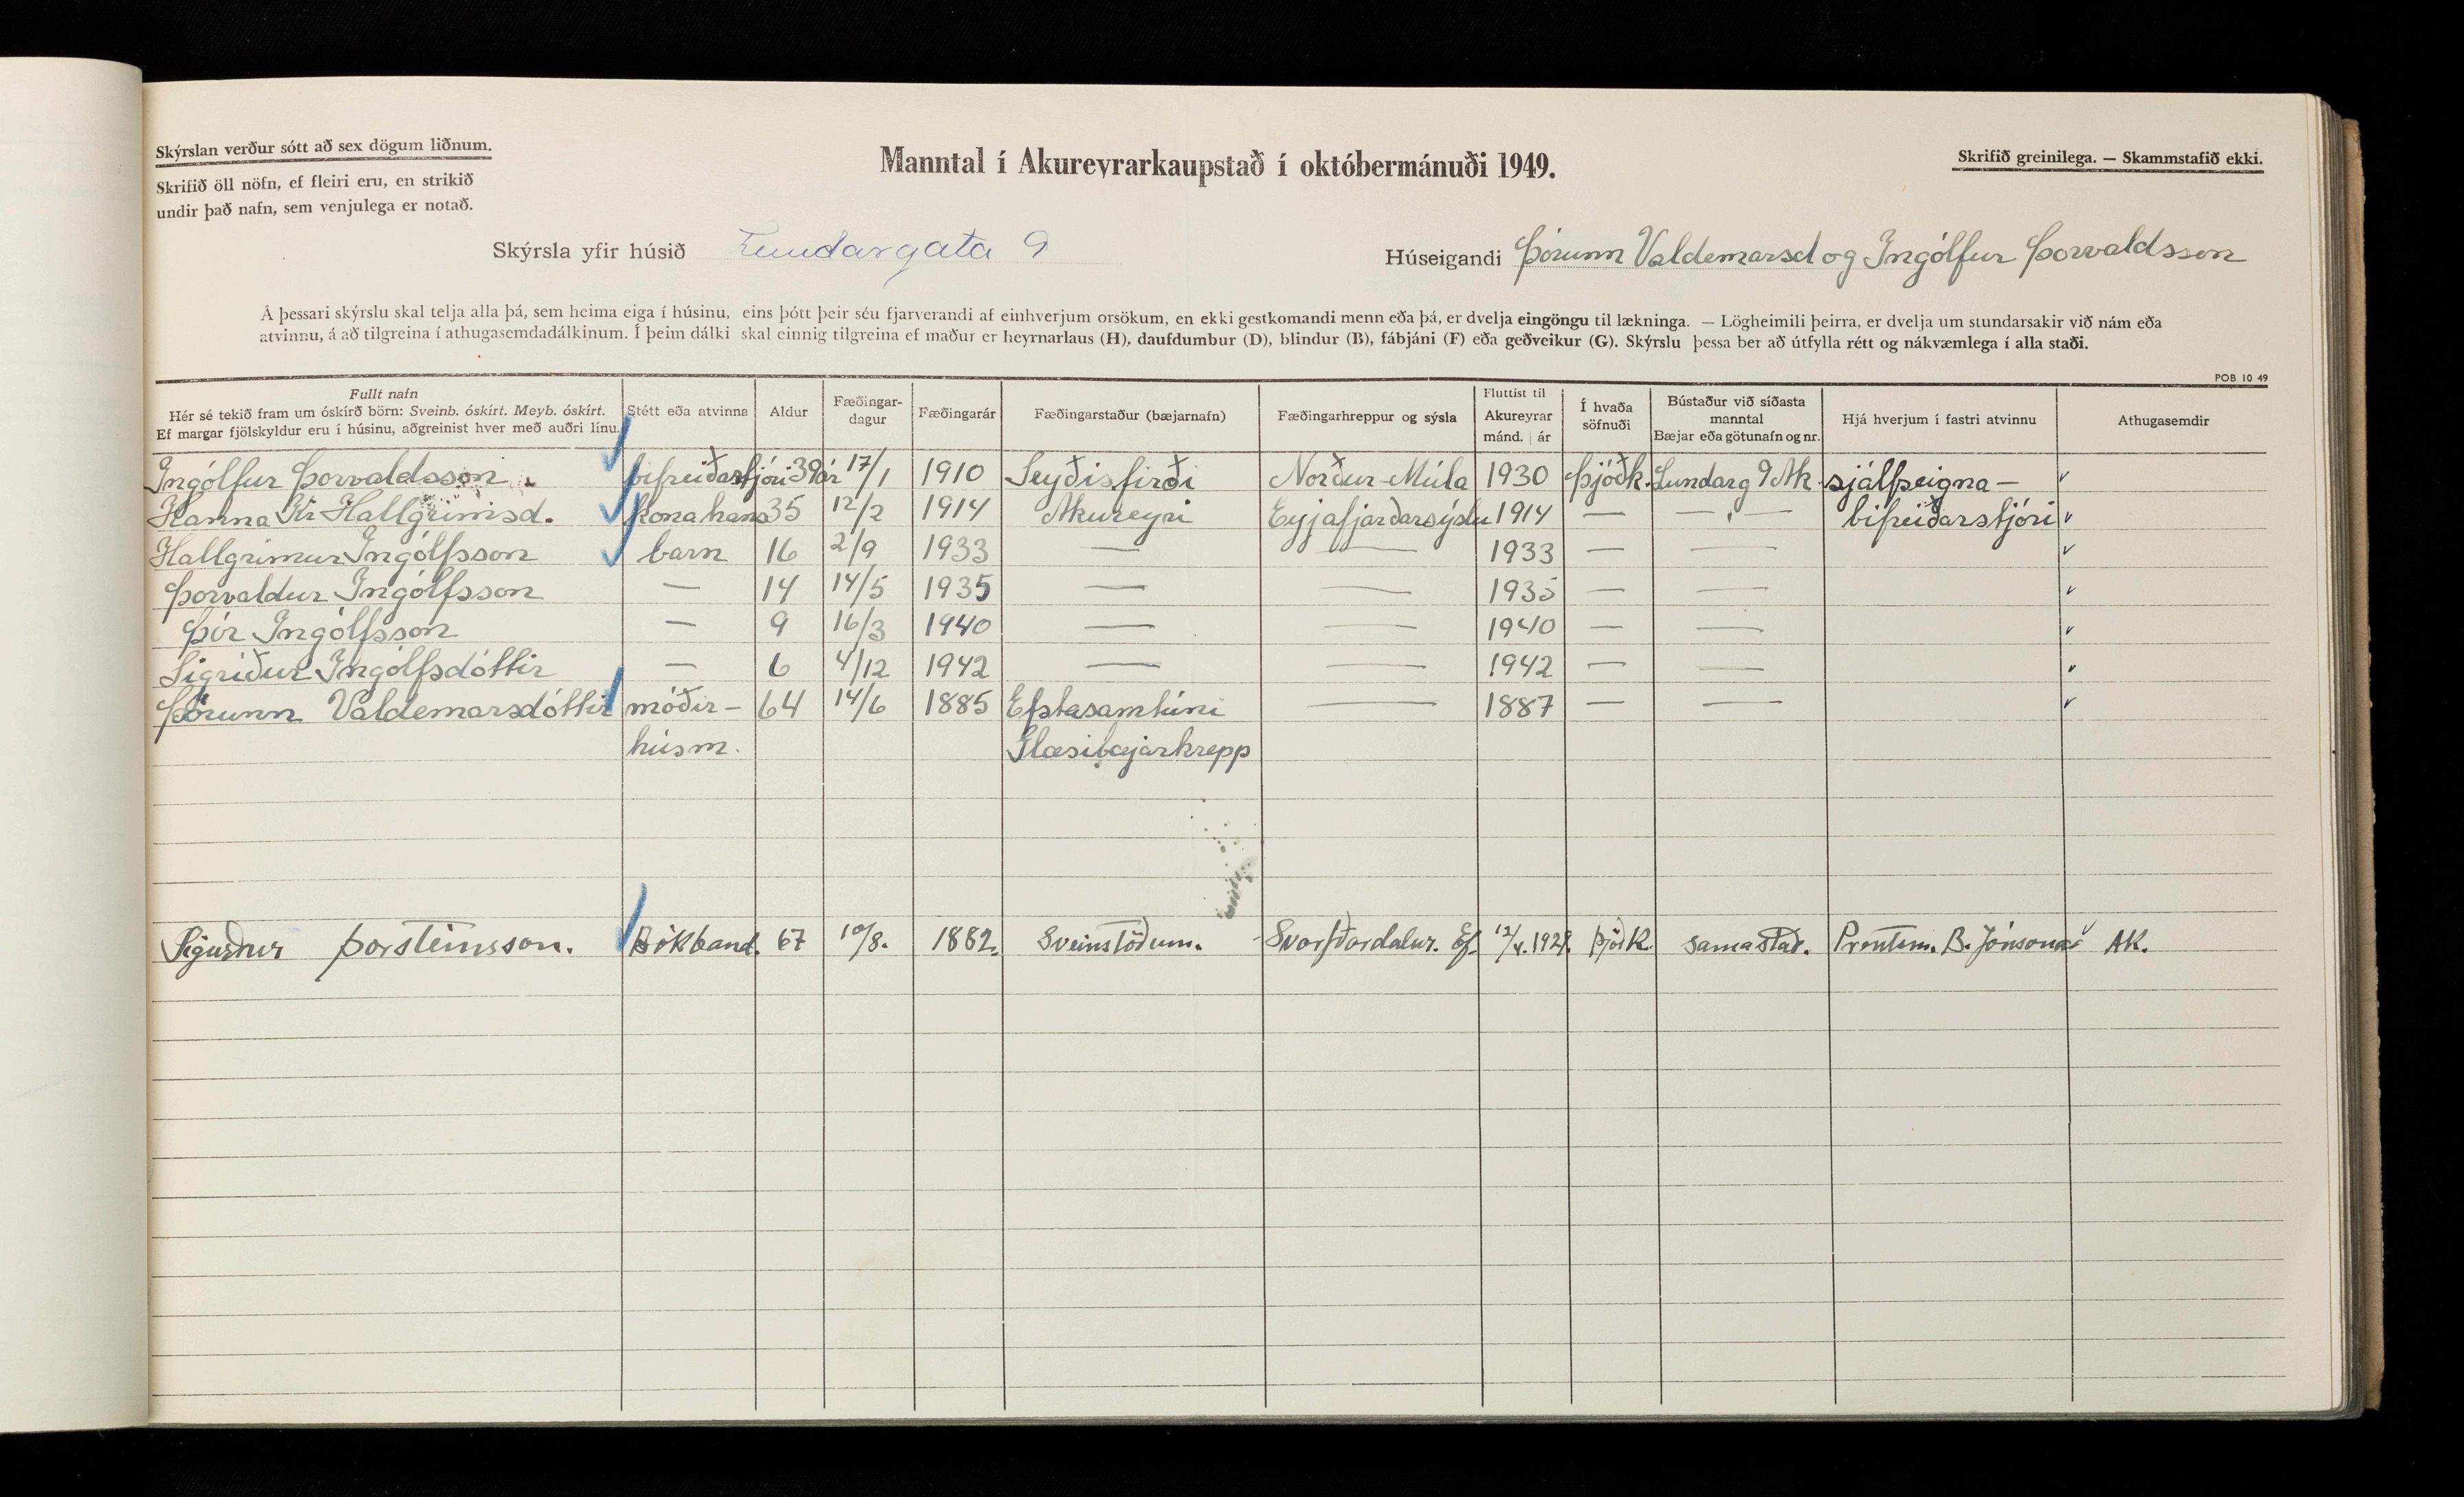 Skýrslan verður sótt að sex dögum liðnum.
Skrifið öll nöfn, ef fleiri eru, en strikið
undir það nafn, sem venjulega er notað.
Manntal í Akureyrarkaupstað í októbermánuði 1949.
Skrifið greinilega. — Skammstafið ekki.
Skýrsla yfir húsið Lundargata 9
Húseigandi Þórunn Valdemarsd og Ingólfur Þorvaldsson
Á þessari skýrslu skal telja alla þá, sem heima eiga í húsinu, eins þótt þeir séu fjarverandi af einhverjum orsökum, en ekki gestkomandi menn eða þá, er dvelja eingöngu til lækninga. — Lögheimili þeirra, er dvelja um stundarsakir við nám eða
atvinnu, á að tilgreina í athugasemdadálkinum. Í þeim dálki skal einnig tilgreina ef maður er heyrnarlaus (H), daufdumbur (D), blindur (B), fábjáni (F) eða geðveikur (G). Skýrslu þessa ber að útfylla rétt og nákvæmlega í alla staði.
POB 10 49
Fullt nafn
Hér sé tekið fram um óskírð börn: Sveinb. óskírt. Meyb. óskírt.
Ef margar fjölskyldur eru í húsinu, aðgreinist hver með auðri línu.
Stétt eða atvinna
Aldur
Fæðingar-
dagur
Fæðingarár
Fæðingarstaður (bæjarnafn)
Fæðingarhreppur og sýsla
Fluttist til
Akureyrar
mánd. | ár
Í hvaða
söfnuði
Bústaður við síðasta
manntal
Bæjar eða götunafn og nr.
Hjá hverjum í fastri atvinnu
Athugasemdir
Ingólfur Þorvaldsson bifreiðastjóri 39 ár 17/1 1910 Seyðisfirði Norður-Múla 1930 Þjóðk. Lundarg 9 Ak sjálfseigna-
Hanna Kr Hallgrímsd. kona hans 35 12/2 1914 Akureyri Eyjafjarðarsýslu 1914 — — " — bifreiðarstjóri
Hallgrímur Ingólfsson barn 16 2/9 1933 — — 1933 — —
Þorvaldur Ingólfsson — 14 14/5 1935 — — 1935 — —
Þór Ingólfsson — 9 16/3 1940 — — 1940 — —
Sigríður Ingólfsdóttir — 6 4/12 1942 — — 1942 — —
Þórunn Valdemarsdóttir móðir- 64 14/6 1885 Efstasamtúni — 1887 — —
húsm. Glæsibæjarhrepp
Sigurður Þorsteinsson. Bókband. 67 10/8. 1882. Sveinstöðum. Svarfðardalur. Ef. 12/V. 1929. Þjóðk. sama stað. Prentsm. B. Jónsonar AK.